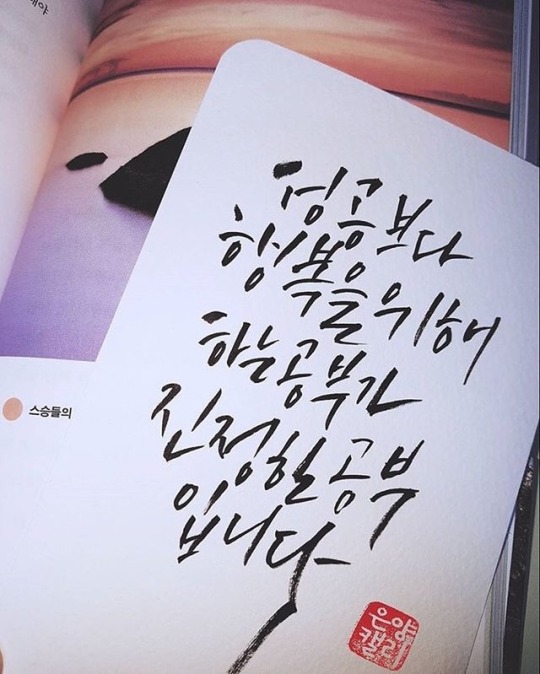 해야
스승들의
성공보다
행복을위해
하는공부가
진정한공부
입니다
은양
캘리